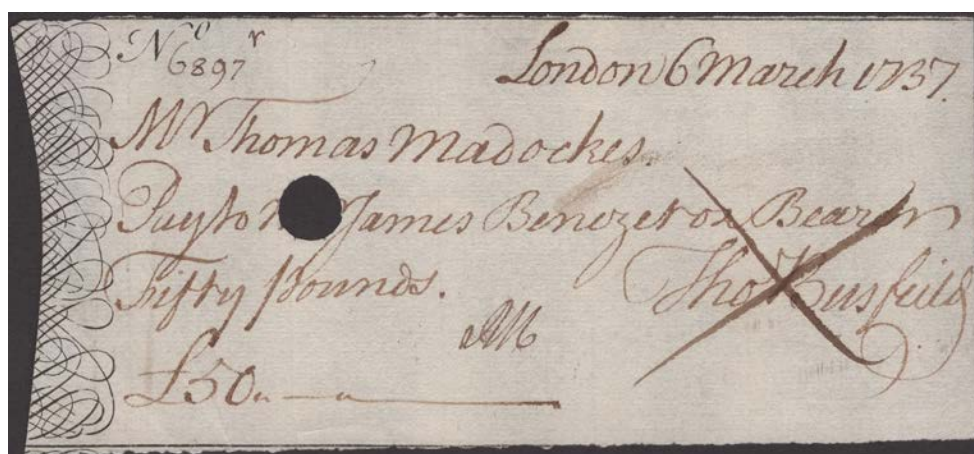 No 6897 r
London 6 March 1737.
Mr Thomas Madockes.
Pay to James Benezet or Bearer
Fifty pounds.
Tho
£50